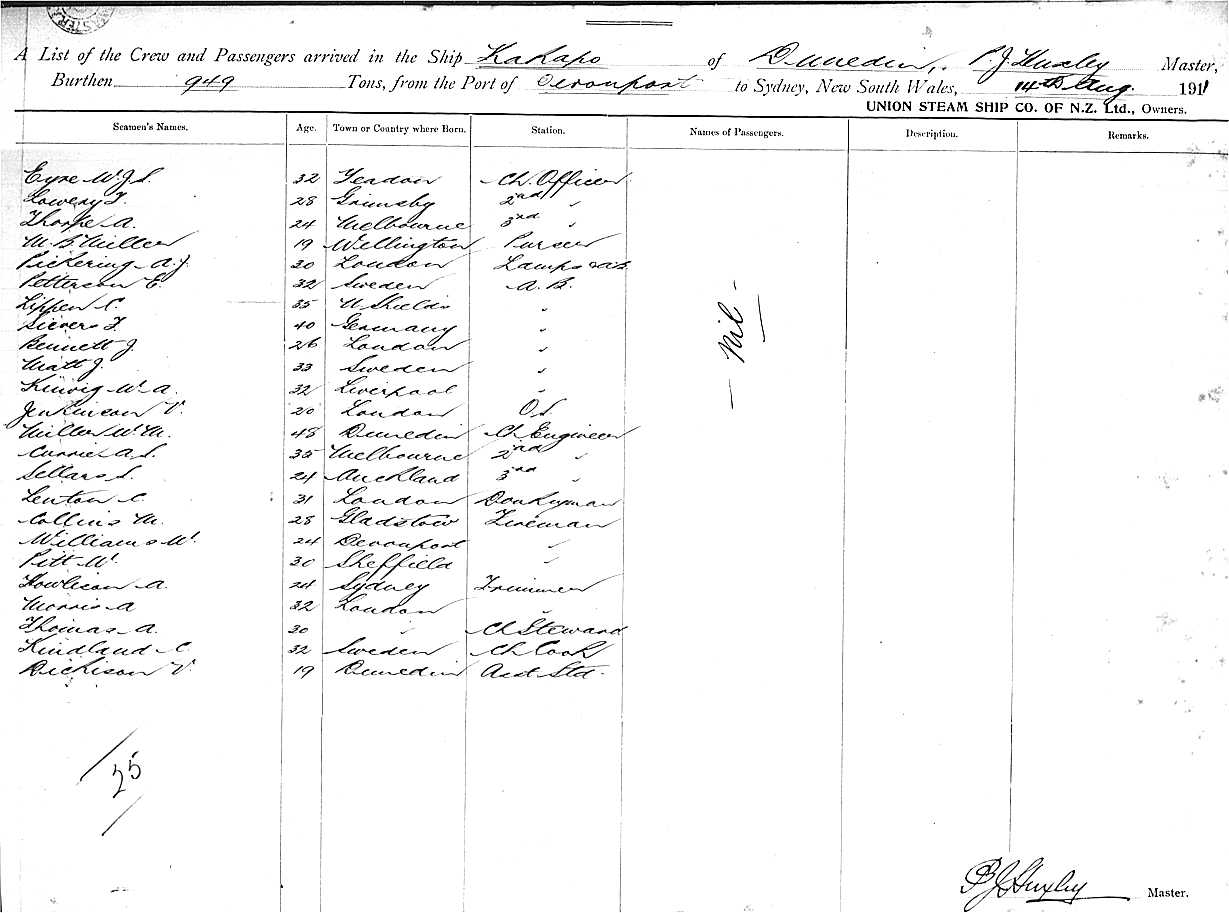 A List of the Crew and Passengers arrived in the Ship Kakapo of Dunedin, P. J. Huxley Master,
Burthen 949 Tons, from the Port of Devonport to Sydney, New South Wales, 14th Aug. 1911
UNION STEAM SHIP CO. OF N.Z. Ltd., Owners.
Seamen's Names. Age. Town or Country where Born. Station. Names of Passengers. Description. Remarks.
Eyre W. J. S. 32 Yeadon Ch. Officer
Lowery T. 28 Grimsby 2nd "
Thorpe A. 24 Melbourne 3rd "
M. B. Miller 19 Wellington Purser
Pickering A. J. 30 London Lamps & AB
Petterson E. 32 Sweden A. B.
Lippen C. 35 N Shields "
Sievers F. 40 Germany "
Bennett J. 26 London "
Matt J. 33 Sweden "
Kinvig W. A. 32 Liverpool "
Jenkinson V. 20 London O.S.
Miller W. M. 48 Dunedin Ch Engineer
Currie A. S. 35 Melbourne 2nd "
Sellars S. 24 Auckland 3rd "
Lenton C. 31 London Donkeyman
Collins M. 28 Gladstow Fireman
Williams W. 24 Devonport "
Pitt W. 30 Sheffield "
Howlison A. 24 Sydney Trimmer
Morris A 32 London "
Thomas A. 30 " Ch Steward
Kindland C 32 Sweden Ch Cook
Dickison V. 19 Dunedin Asst Std.
- Nil -
25
P J Huxley Master.